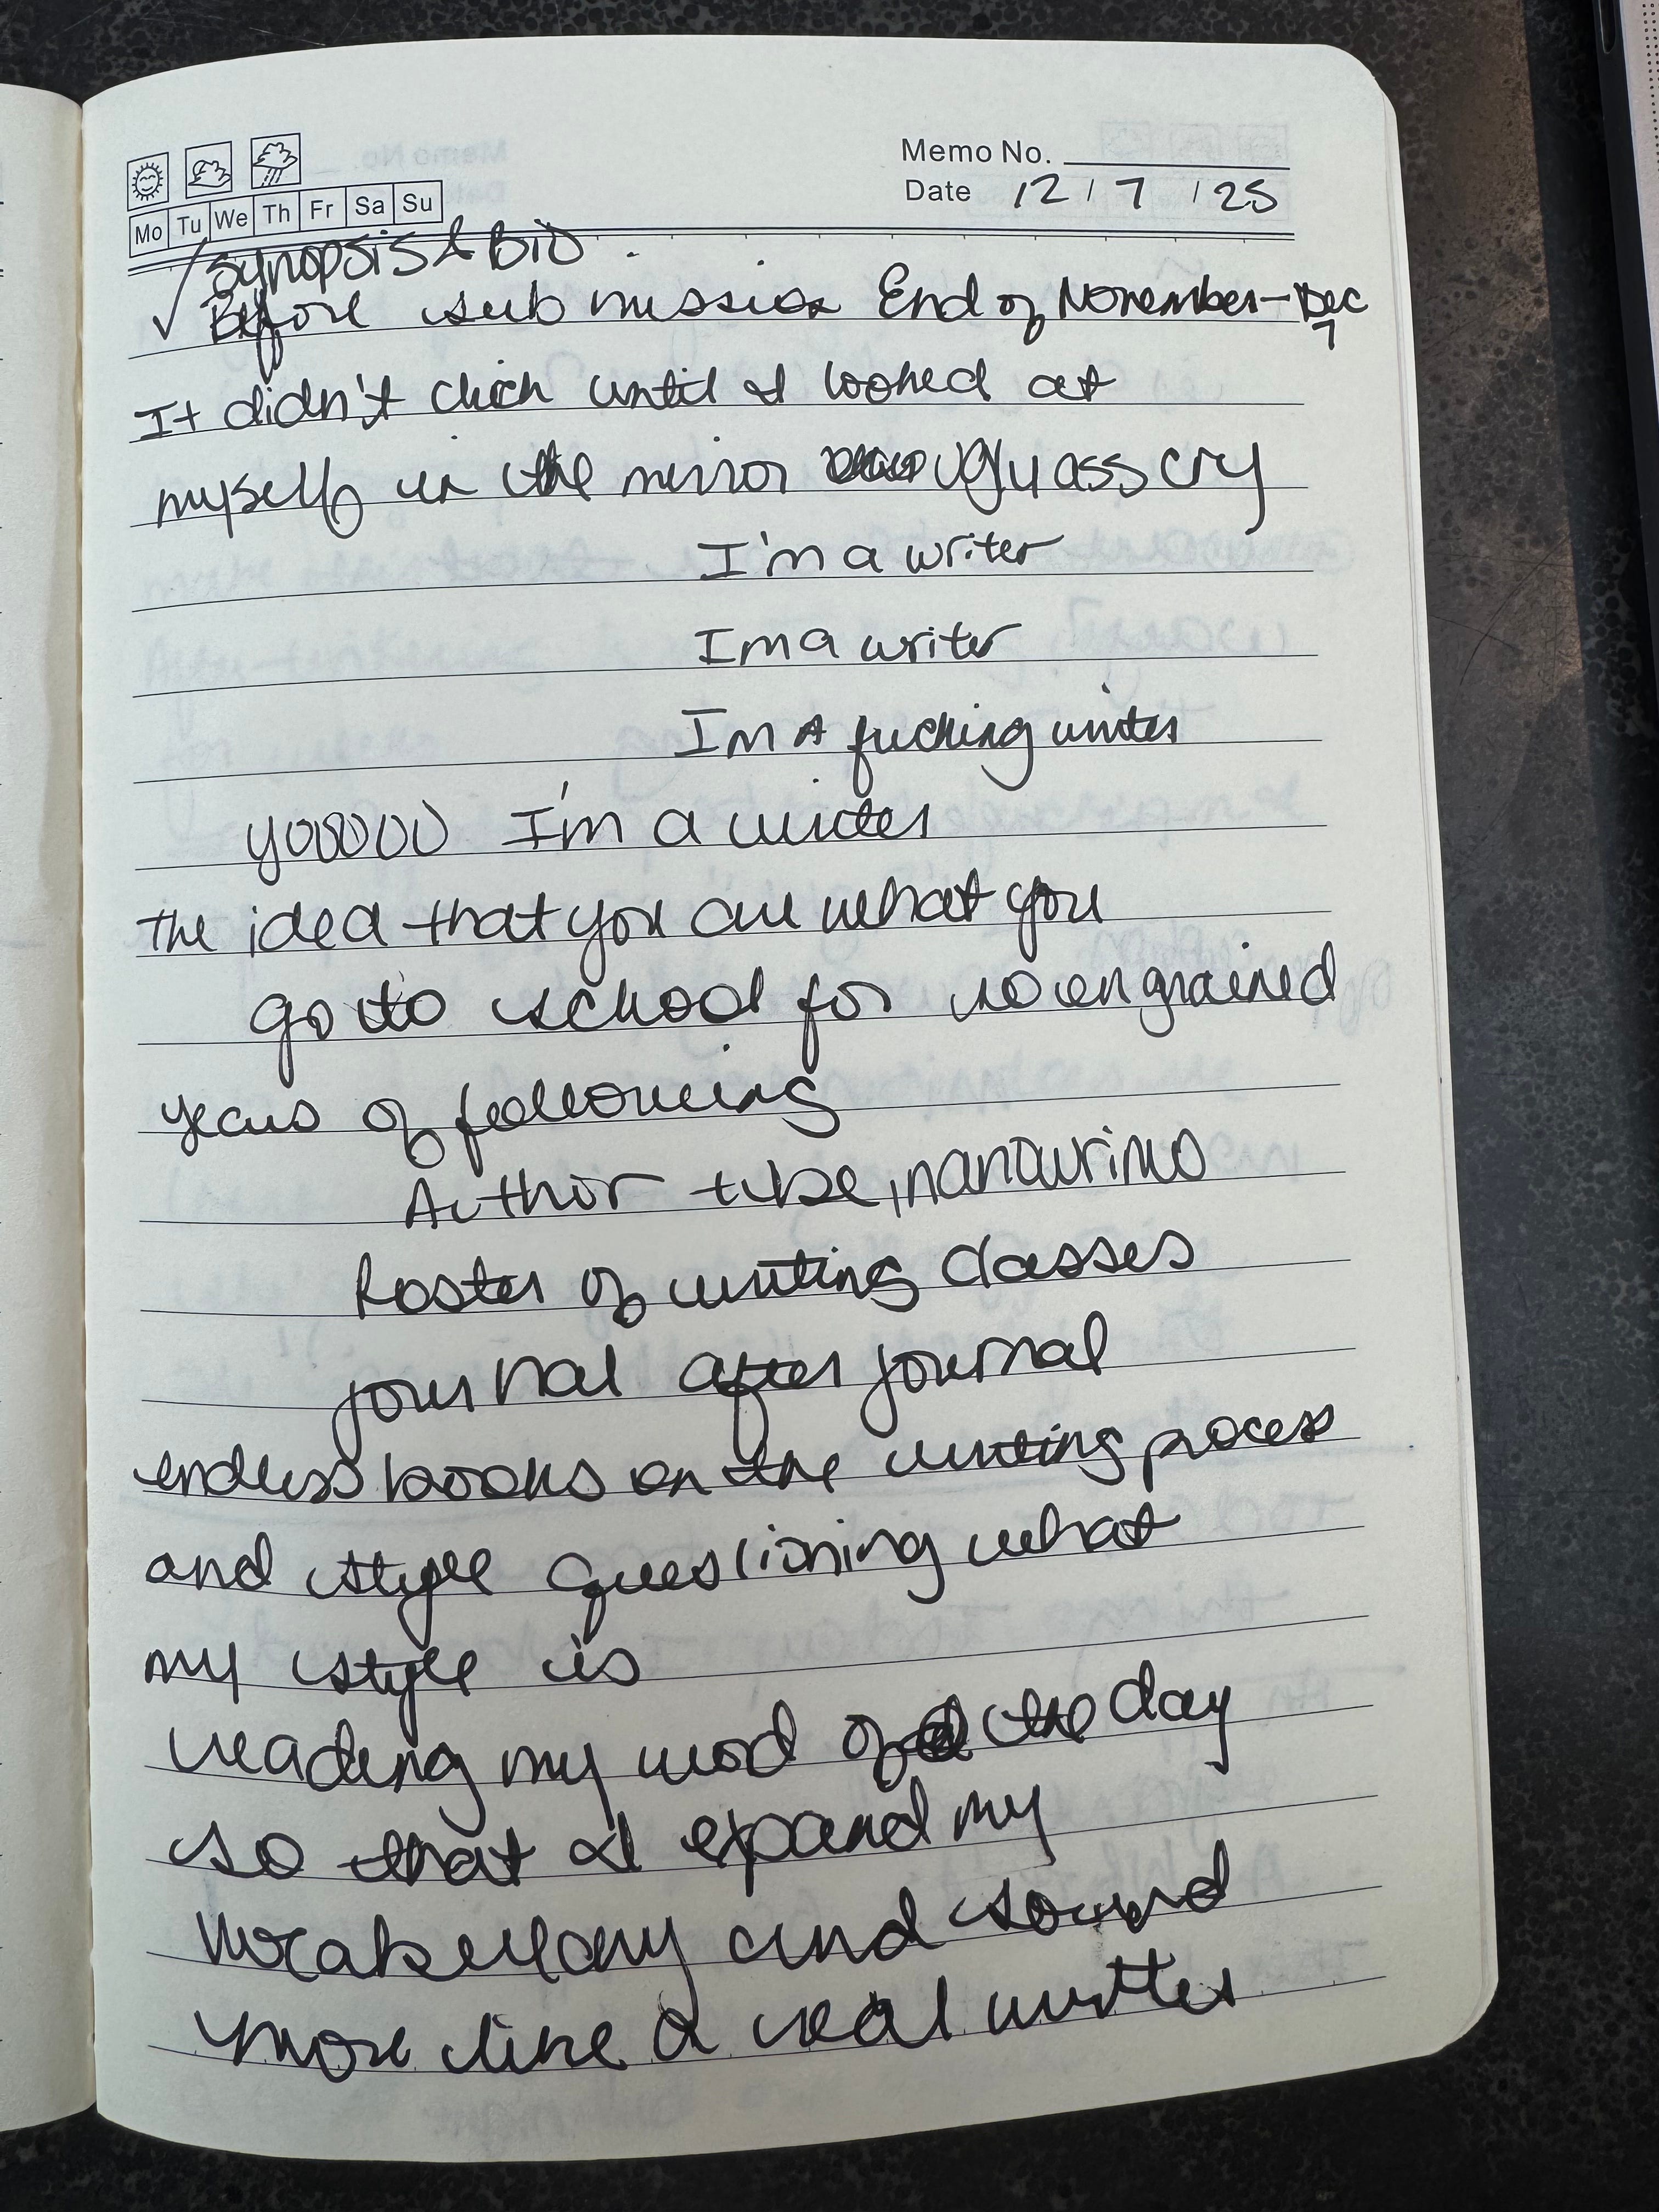 Memo No.
Date 12 / 7 / 25
Mo Tu We Th Fr Sa Su
✓ Synopsis & Bio
Before submission End of November - Dec 7
It didn't click until I looked at
myself in the mirror ugly ass cry
I'm a writer
Im a writer
Im A fucking writer
yooooo I'm a writer
The idea that you are what you
go to school for so engrained
years of following
Author tube, nanowrimo
Roster of writing classes
journal after journal
endless books on the writing process
and style questioning what
my style is
reading my word of the day
so that I expand my
vocabullary and sound
more like a real writter